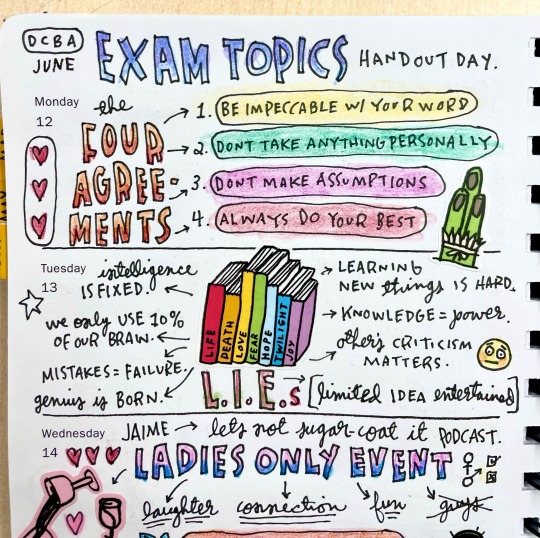 DCBA
JUNE
EXAM TOPICS HANDOUT DAY.
Monday
12
the
FOUR
AGREE-
MENTS
1. BE IMPECCABLE W/ YOUR WORD
2. DONT TAKE ANYTHING PERSONALLY
3. DONT MAKE ASSUMPTIONS
4. ALWAYS DO YOUR BEST
Tuesday
13
intelligence
IS FIXED.
we only USE 10%
OF OUR BRAIN.
MISTAKES = FAILURE.
genius is BORN.
LIFE
DEATH
LOVE
FEAR
HOPE
TWILIGHT
JOY
LEARNING
NEW things IS HARD.
KNOWLEDGE = power.
other's CRITICISM
MATTERS.
L.I.E.s [limited IDEA entertained]
Wednesday
14
JAIME → lets not sugar-coat it PODCAST.
LADIES ONLY EVENT
laughter connection fun guys